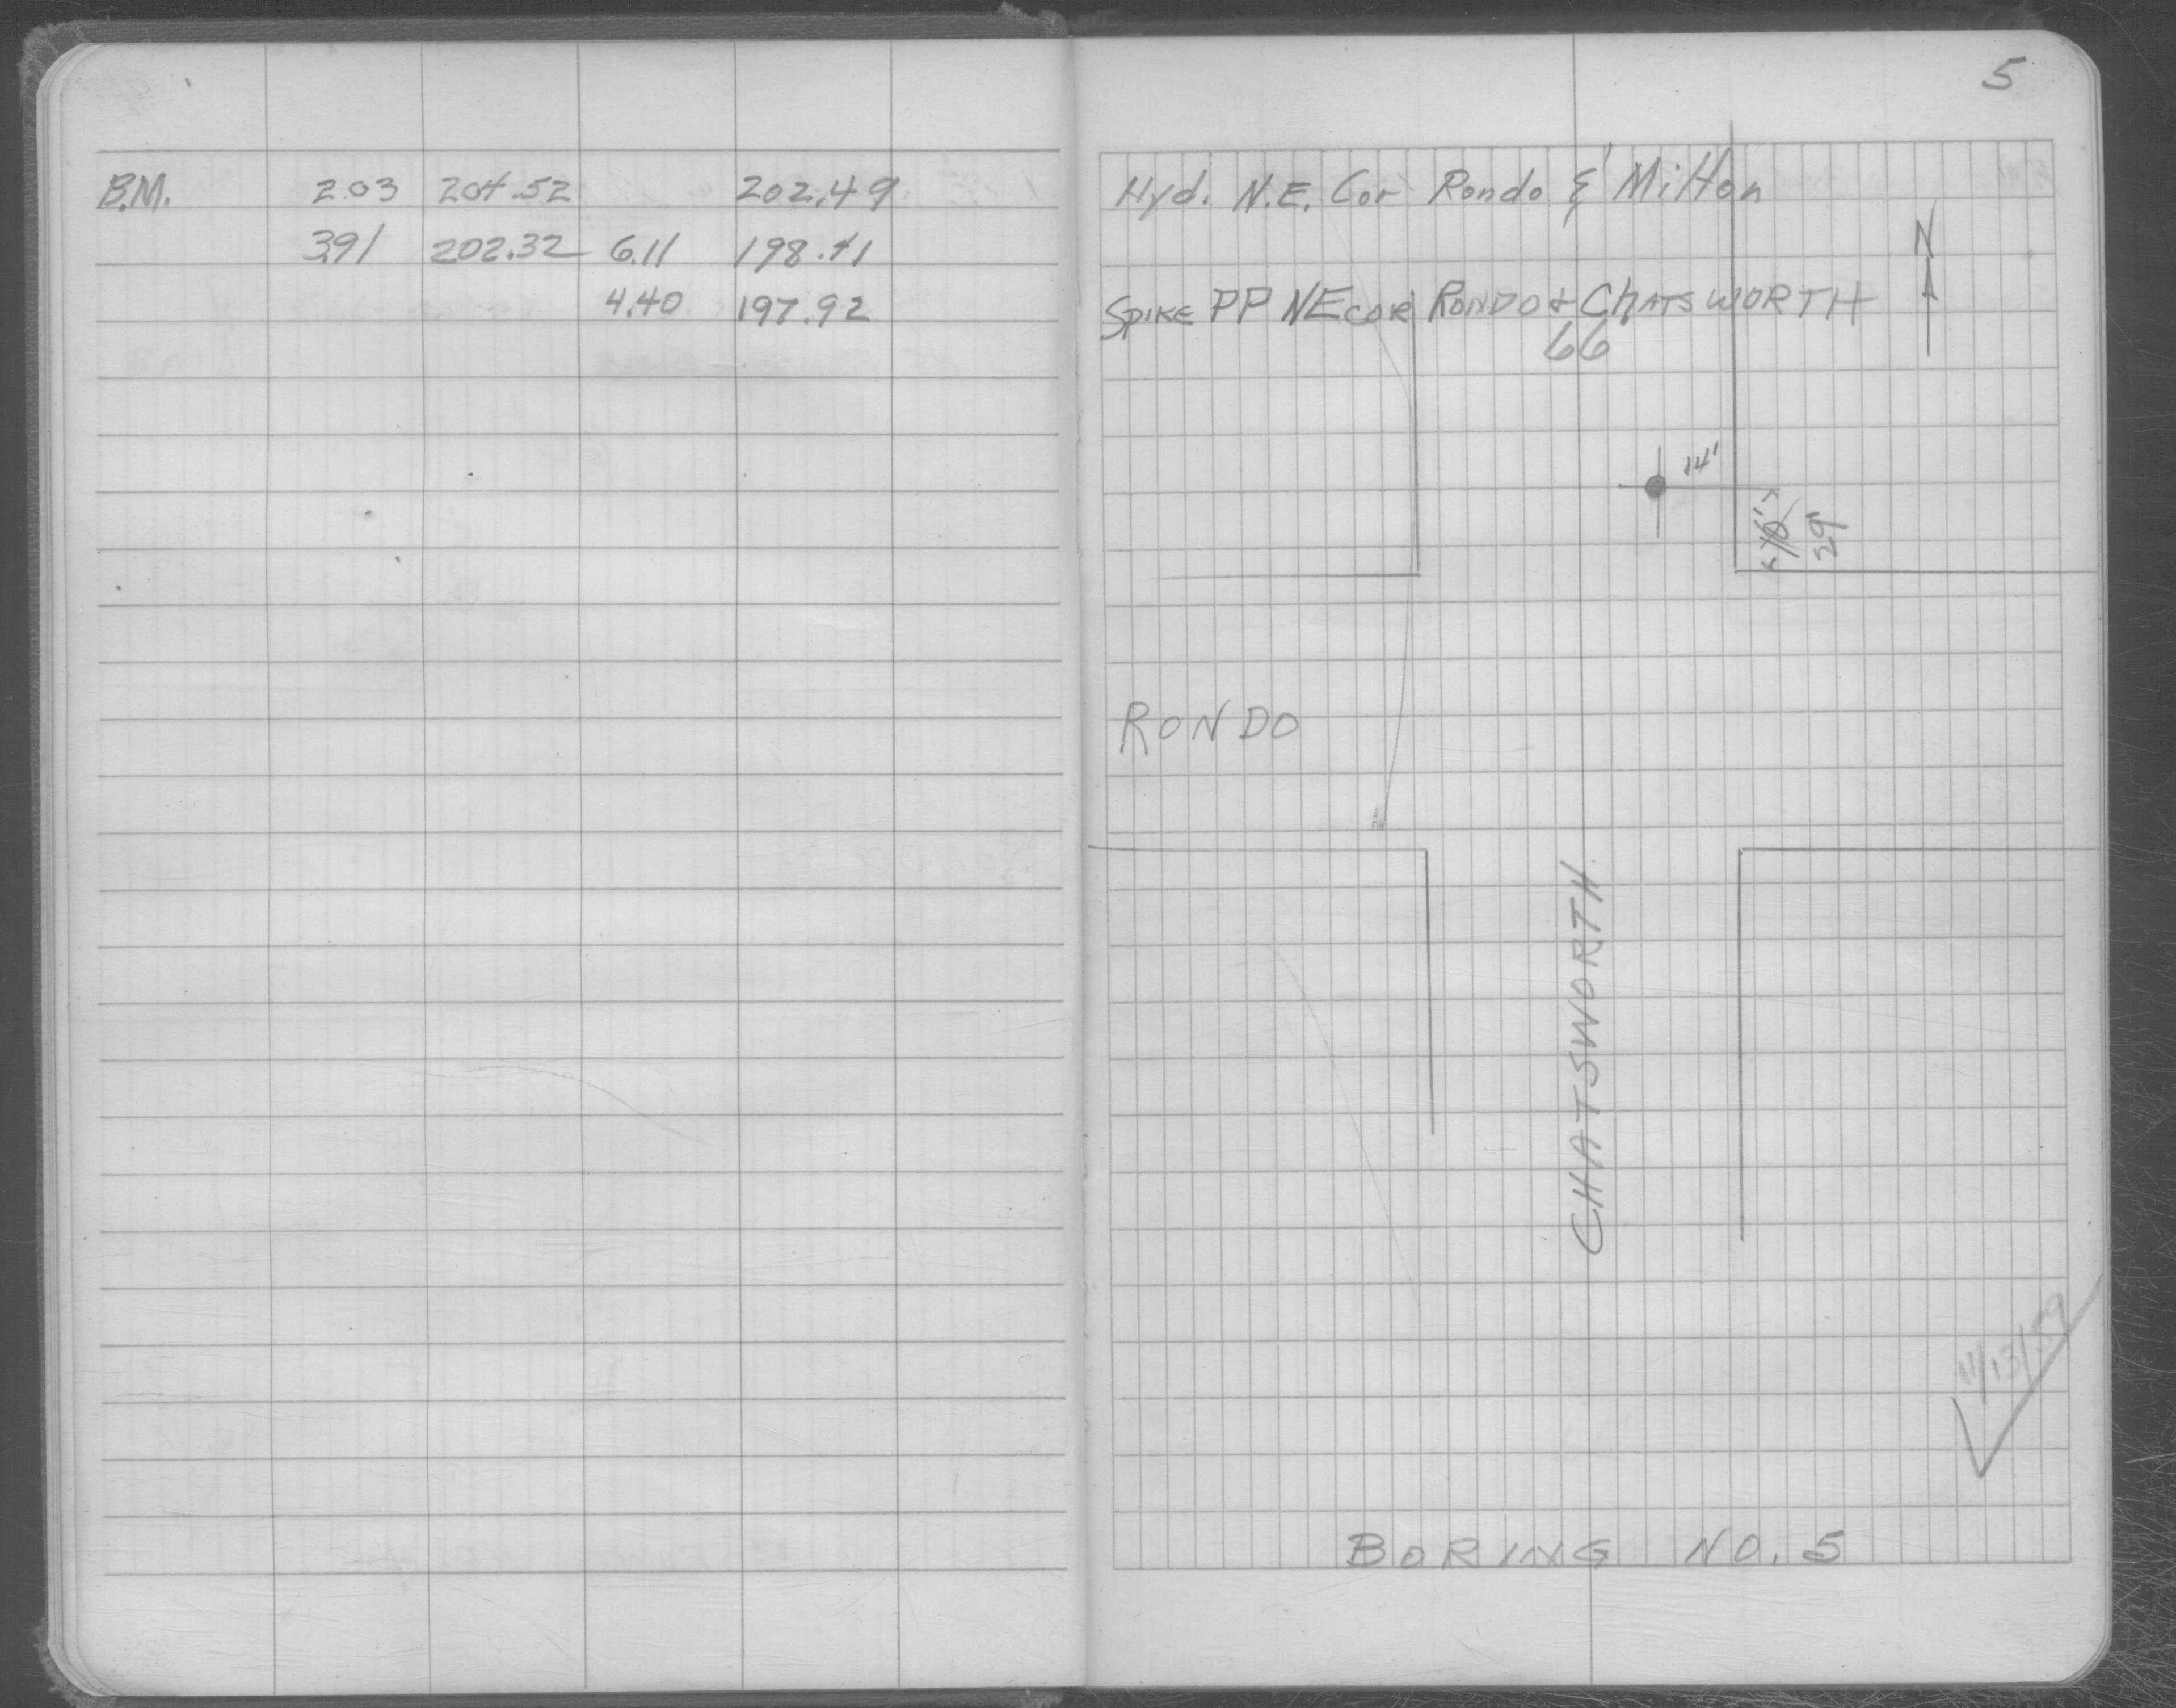 B.M. 2.03 204.52 202.49
3.91 202.32 6.11 198.41
4.40 197.92
5
Hyd. N.E. Cor Rondo & Milton
N
SPIKE PP NE COR RONDO & CHATSWORTH
66
14'
29'
RONDO
CHATSWORTH
11/13/59
BORING NO. 5